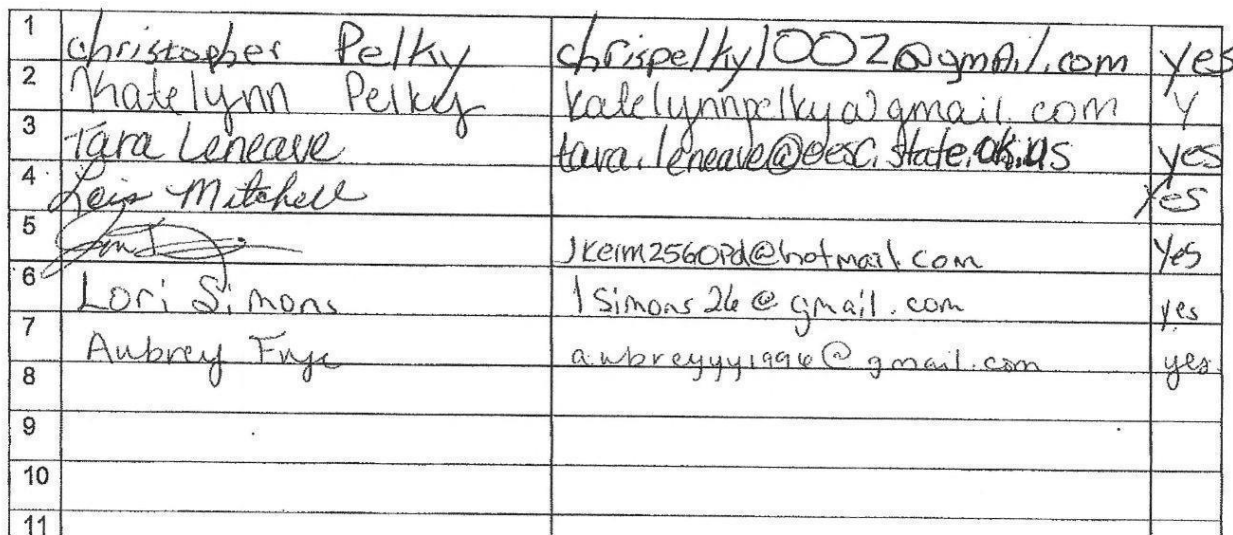 1 christopher Pelky chrispelky1002@gmail.com yes
2 Katelynn Pelky katelynnpelky@gmail.com Y
3 Tara Leneave tara.leneave@oesc.state.ok.us yes
4 Lois Mitchell yes
5 jkeim2560pd@hotmail.com Yes
6 Lori Simons lsimons26@gmail.com yes
7 Aubrey aubreyyy1996@gmail.com yes.
8
9
10
11